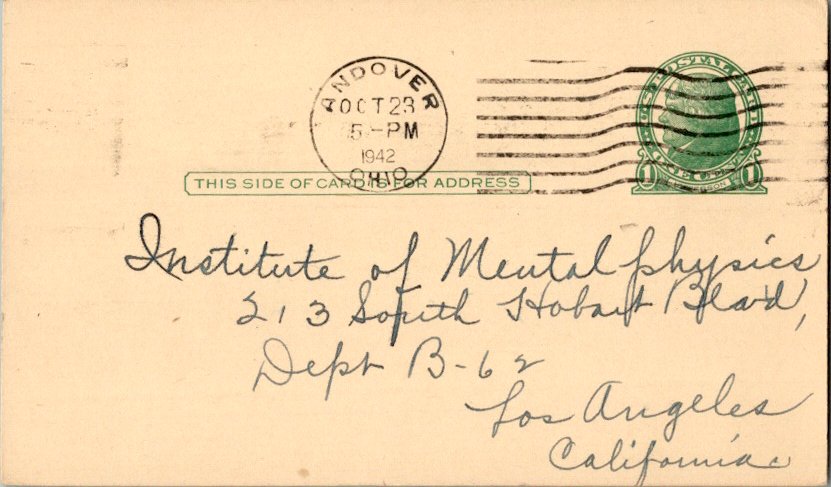 ANDOVER
OCT 23
5-PM
1942
OHIO
U.S. POSTAL CARD
1 JEFFERSON 1
THIS SIDE OF CARD IS FOR ADDRESS
Institute of Mentalphysics
213 South Hobart Blvd,
Dept B-62
Los Angeles
California